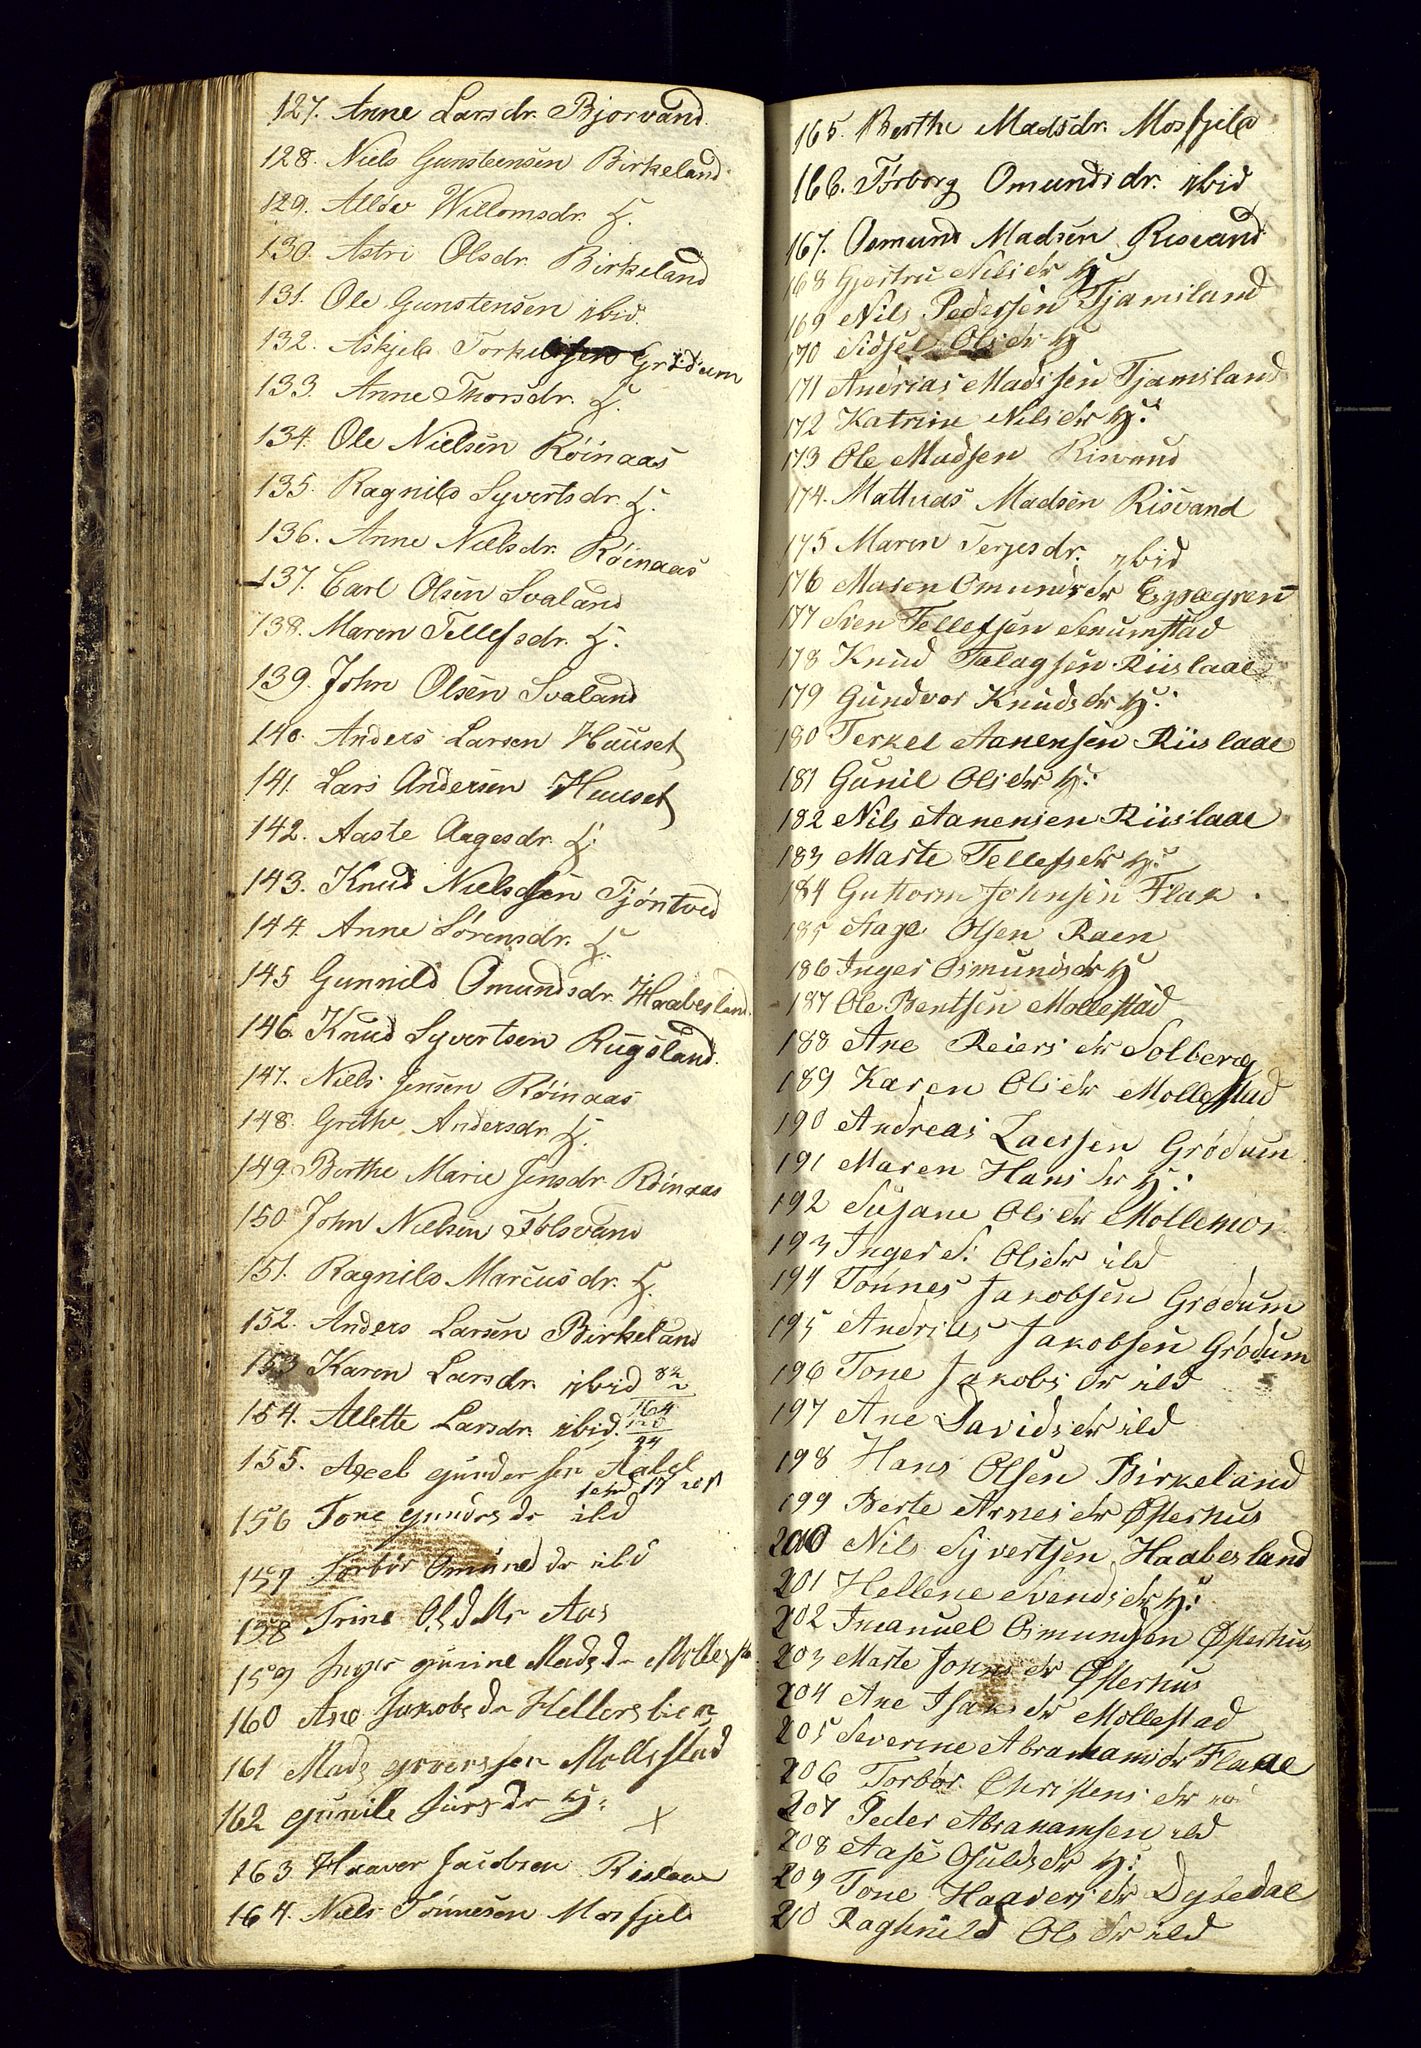 127. Anne Larsdr. Bjorvand.
128. Niels Gunsteensen Birkeland
129. Allow Willomsdr. H.
130. Astri Olsdr. Birkeland
131. Ole Gunstensen ibid.
132. Askjeld Torkelsen Grødum
133. Anne Thorsdr. H.
134. Ole Nielsen Röinaas
135. Ragnild Syvertsdr. H.
136. Anne Nielsdr. Röinaas
137. Carl Olsen Svaland
138. Maren Tellefsdr. H.
139. John Olsen Svaland
140. Anders Larsen Hauset
141. Lars Andersen Hauset
142. Aaste Aagesdr. H.
143. Knud Nielsen Tjöntved
144. Anne Sörensdr. H.
145 Gunnild Omundsdr. Haabesland.
146. Knud Syvertsen Rugsland.
147. Niels Jensen Röinaas
148. Grethe Andersdr H.
149. Berthe Marie Jensdr. Röinaas
150 John Nielsen Fölsvand
151. Ragnild Marcusdr. H.
152. Anders Larsen Birkeland
153 Karen Larsdr. ibid 82
2
154. Allette Larsdr. ibid. 164
120
44
155. Axel gundersen Aabel
156 Tone gundersdr ibd
157 Torbör Omundsdr ibd
158 Trine Olsdtr Aas
159 Inger gurine Madsdr Mollest
160 Ane Jakobsdr Hellerslien
161 Mads groverssen Mollestad
162 gunild Jursdr H: x
163 Haaver Jacobsen Rislaae
164. Niels Tönnesen Mosfjeld
165. Berthe Madsdr. Mosfjeld
166. Törborg Omundsdr. ibid
167. Osmund Madsen Risvand
168 Gjertru Nilsdr H
169 Nils Pedersen Tjamsland
170 Sidsel Olsdr H
171 Andrias Madssen Tjamsland
172 Katrine Nilsdr H:
173 Ole Madsen Risvand
174. Mathias Madsen Risvand
175 Maren Terjesdr. ibid
176 Maren Omundsdr Eppegren
177 Sven Tellefsen Senumstad
178 Knud Salagsen Riislaae
179 Gundvor Knudsdr H:
180 Terkel Aanensen Riislaae
181 Gunil Olsdr H:
182 Nils Aanensen Riislaae
183 Marte Tellefsdr H:
184 Guttorm Johnsen Flak .
185 Aage Olsen Raen
186 Inger Osmundsdr H
187 Ole Bentsen Mollestad
188 Ane Reiersdr Solberg
189 Karen Olsdr Mollestad
190 Andreas Larssen Grödum
191 Maren Hansdr H:
192 Susane Olsdr Mollemos
193 Inger S: Olsdr ibd
194 Tönnes Jakobsen Grödum
195 Andrias Jakobsen Grödum
196 Tone Jakobsdr ibd
197 Ane Davidsdr ibd
198 Hans Olsen Birkeland
199 Berte Arnesdr Østerhus
200 Nils Syvertsen Haabesland
201 Hellene Svendsdr H:
202 Imanuel Osmundsen Østerhus
203 Marte Johnsdr Østerhus
204 Ane Isaksdr Mollestad
205 Severine Abrahamsdr Flaae
206 Torbör Christensdr ibd
207 Peder Abrahamsen ibd
208 Aase Osuldsdr H:
209 Tone Haaversdr Dybedal
210 Raghnild Olsdr ibd